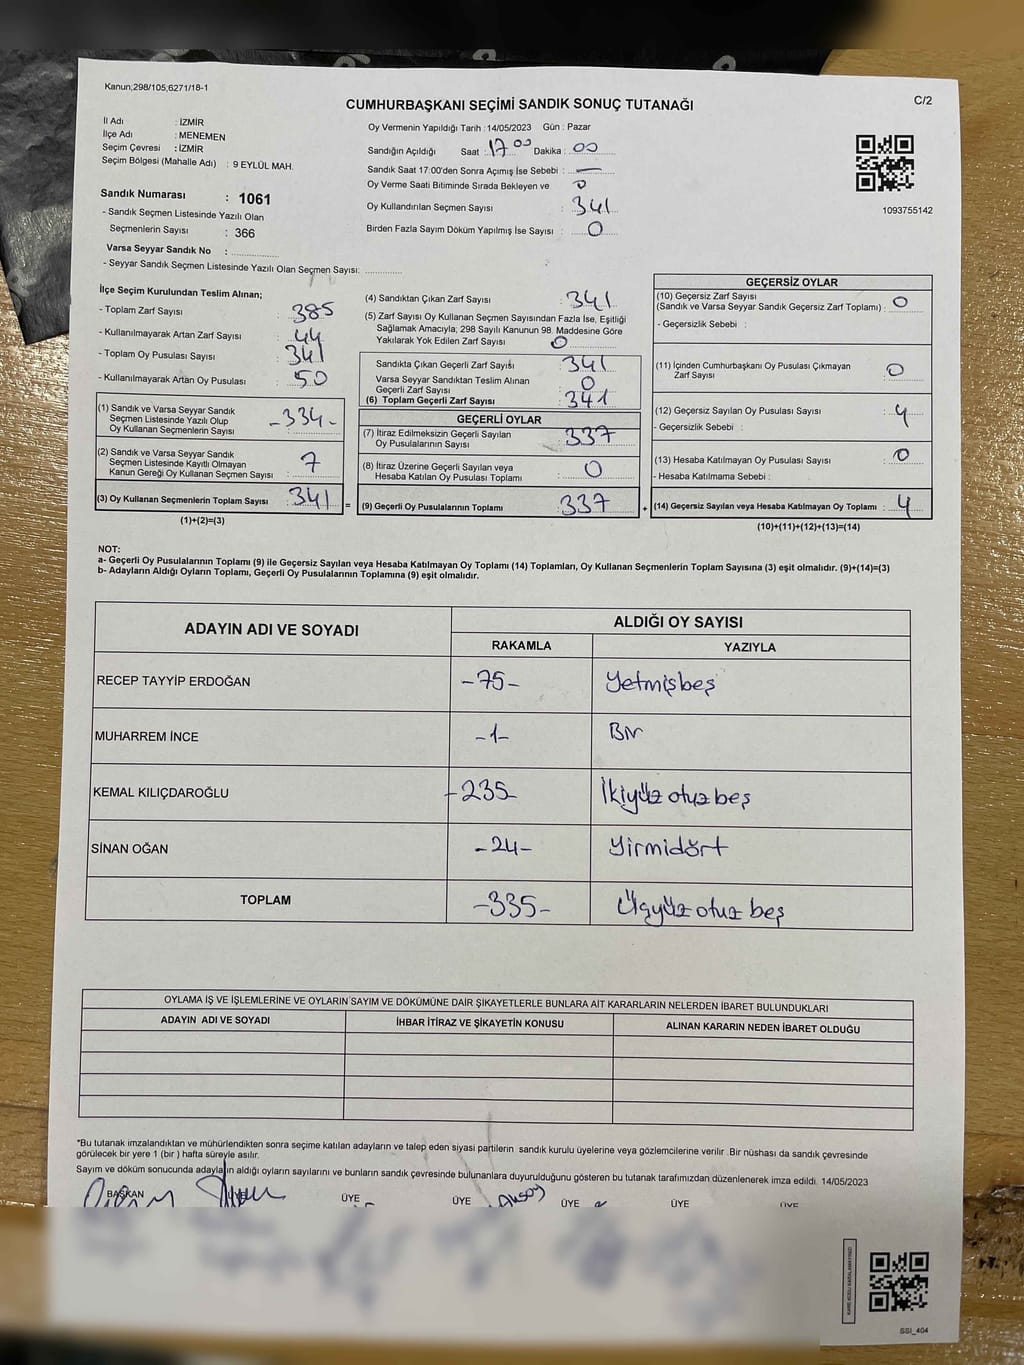 Kanun;298/105;6271/18-1
C/2
CUMHURBAŞKANI SEÇİMİ SANDIK SONUÇ TUTANAĞI
İl Adı : İZMİR
İlçe Adı : MENEMEN
Seçim Çevresi : İZMİR
Seçim Bölgesi (Mahalle Adı) : 9 EYLÜL MAH.
Sandık Numarası : 1061
- Sandık Seçmen Listesinde Yazılı Olan
Seçmenlerin Sayısı : 366
Varsa Seyyar Sandık No :
- Seyyar Sandık Seçmen Listesinde Yazılı Olan Seçmen Sayısı:
Oy Vermenin Yapıldığı Tarih :14/05/2023 Gün : Pazar
Sandığın Açıldığı Saat : 17 00 Dakika : 00
Sandık Saat 17:00'den Sonra Açımış İse Sebebi : —
Oy Verme Saati Bitiminde Sırada Bekleyen ve 0
Oy Kullandırılan Seçmen Sayısı : 341
Birden Fazla Sayım Döküm Yapılmış İse Sayısı : 0
1093755142
İlçe Seçim Kurulundan Teslim Alınan;
- Toplam Zarf Sayısı : 385
- Kullanılmayarak Artan Zarf Sayısı : 44
- Toplam Oy Pusulası Sayısı : 341
- Kullanılmayarak Artan Oy Pusulası : 50
(1) Sandık ve Varsa Seyyar Sandık
Seçmen Listesinde Yazılı Olup
Oy Kullanan Seçmenlerin Sayısı : -334-
(2) Sandık ve Varsa Seyyar Sandık
Seçmen Listesinde Kayıtlı Olmayan
Kanun Gereği Oy Kullanan Seçmen Sayısı : 7
(3) Oy Kullanan Seçmenlerin Toplam Sayısı : 341 =
(1)+(2)=(3)
(4) Sandıktan Çıkan Zarf Sayısı : 341
(5) Zarf Sayısı Oy Kullanan Seçmen Sayısından Fazla İse, Eşitliği
Sağlamak Amacıyla; 298 Sayılı Kanunun 98. Maddesine Göre
Yakılarak Yok Edilen Zarf Sayısı : 0
Sandıkta Çıkan Geçerli Zarf Sayısı : 341
Varsa Seyyar Sandıktan Teslim Alınan
Geçerli Zarf Sayısı : 0
(6) Toplam Geçerli Zarf Sayısı : 341
GEÇERLİ OYLAR
(7) İtiraz Edilmeksizin Geçerli Sayılan
Oy Pusulalarının Sayısı : 337
(8) İtiraz Üzerine Geçerli Sayılan veya
Hesaba Katılan Oy Pusulası Toplamı : 0
(9) Geçerli Oy Pusulalarının Toplamı : 337 +
GEÇERSİZ OYLAR
(10) Geçersiz Zarf Sayısı
(Sandık ve Varsa Seyyar Sandık Geçersiz Zarf Toplamı) : 0
- Geçersizlik Sebebi :
(11) İçinden Cumhurbaşkanı Oy Pusulası Çıkmayan
Zarf Sayısı : 0
(12) Geçersiz Sayılan Oy Pusulası Sayısı : 4
- Geçersizlik Sebebi :
(13) Hesaba Katılmayan Oy Pusulası Sayısı : 0
- Hesaba Katılmama Sebebi :
(14) Geçersiz Sayılan veya Hesaba Katılmayan Oy Toplamı : 4
(10)+(11)+(12)+(13)=(14)
NOT:
a- Geçerli Oy Pusulalarının Toplamı (9) ile Geçersiz Sayılan veya Hesaba Katılmayan Oy Toplamı (14) Toplamları, Oy Kullanan Seçmenlerin Toplam Sayısına (3) eşit olmalıdır. (9)+(14)=(3)
b- Adayların Aldığı Oyların Toplamı, Geçerli Oy Pusulalarının Toplamına (9) eşit olmalıdır.
ADAYIN ADI VE SOYADI ALDIĞI OY SAYISI
RAKAMLA YAZIYLA
RECEP TAYYİP ERDOĞAN -75- Yetmişbeş
MUHARREM İNCE -1- Bir
KEMAL KILIÇDAROĞLU -235- İkiyüz otuz beş
SİNAN OĞAN -24- Yirmidört
TOPLAM -335- Üçyüz otuz beş
OYLAMA İŞ VE İŞLEMLERİNE VE OYLARIN SAYIM VE DÖKÜMÜNE DAİR ŞİKAYETLERLE BUNLARA AİT KARARLARIN NELERDEN İBARET BULUNDUKLARI
ADAYIN ADI VE SOYADI İHBAR İTİRAZ VE ŞİKAYETİN KONUSU ALINAN KARARIN NEDEN İBARET OLDUĞU
*Bu tutanak imzalandıktan ve mühürlendikten sonra seçime katılan adayların ve talep eden siyasi partilerin sandık kurulu üyelerine veya gözlemcilerine verilir. Bir nüshası da sandık çevresinde
görülecek bir yere 1 (bir ) hafta süreyle asılır.
Sayım ve döküm sonucunda adayların aldığı oyların sayılarını ve bunların sandık çevresinde bulunanlara duyurulduğunu gösteren bu tutanak tarafımızdan düzenlenerek imza edildi. 14/05/2023
BAŞKAN ÜYE ÜYE ÜYE ÜYE ÜYE
SSI_404